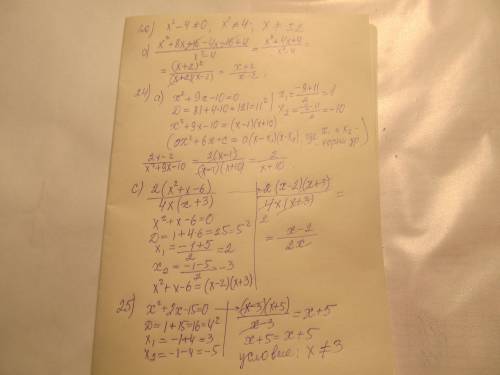 20) x² - 4 ≠ 0, x² ≠ 4, x ≠ ±2
(x² + 8x + 16 - 4x - 16 + 4)/(x² - 4) = (x² + 4x + 4)/(x² - 4) =
= (x+2)²/((x+2)(x-2)) = (x+2)/(x-2)
24) a) x² + 9x - 10 = 0 | x₁ = (-9+11)/2 = 1
D = 81 + 4·10 = 121 = 11² | x₂ = (-9-11)/2 = -10
x² + 9x - 10 = (x-1)(x+10)
(ax² + bx + c = a(x-x₁)(x-x₂), где x₁ и x₂ - корни ур.)
(2x-2)/(x²+9x-10) = 2(x-1)/((x-1)(x+10)) = 2/(x+10)
c) 2(x²+x-6)/(4x(x+3)) → 2(x-2)(x+3)/(4x(x+3)) =
x² + x - 6 = 0
D = 1 + 4·6 = 25 = 5²
x₁ = (-1+5)/2 = 2 | = (x-2)/(2x)
x₂ = (-1-5)/2 = -3
x² + x - 6 = (x-2)(x+3)
25) x² + 2x - 15 = 0 → (x-3)(x+5)/(x-3) = x+5
D = 1 + 15 = 16 = 4²
x₁ = -1+4 = 3 | x+5 = x+5
x₂ = -1-4 = -5 | условие: x ≠ 3